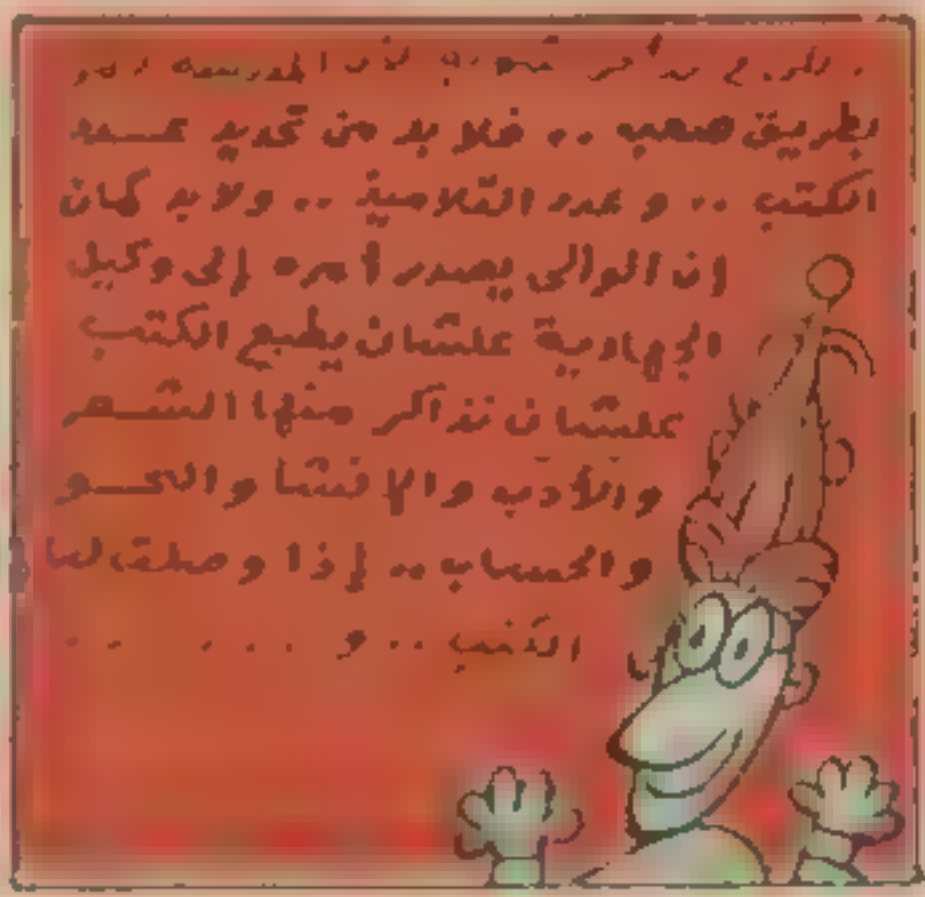 لأن المدرسة
بطريق صعب .. فلا بد من تحديد عدد
الكتب .. و عدد التلاميذ .. ولا بد كمان
إن الوالى يصدر أمره إلى وكيل
الجهادية علشان يطبع الكتب
علشان نذاكر منها الشعر
والأدب والإنشا والنحو
والحساب .. إذا وصلت لنا
الكتب .. و ... ..